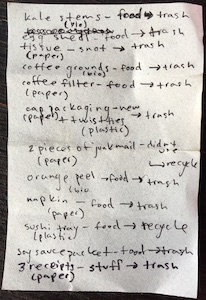 kale stems - food → trash
(bio)
egg shell - food → trash
tissue - snot → trash
(paper)
coffee grounds - food → trash
(bio)
coffee filter - food → trash
(paper)
packaging - new
+ twist ties → trash
(plastic)
2 pieces of junk mail - didn't
(paper)
→ recycle
orange peel - food → trash
(bio
napkin - food → trash
(paper)
sushi tray - food → recycle
(plastic)
soy sauce packet - food → trash
3 receipts - stuff → trash
(paper)